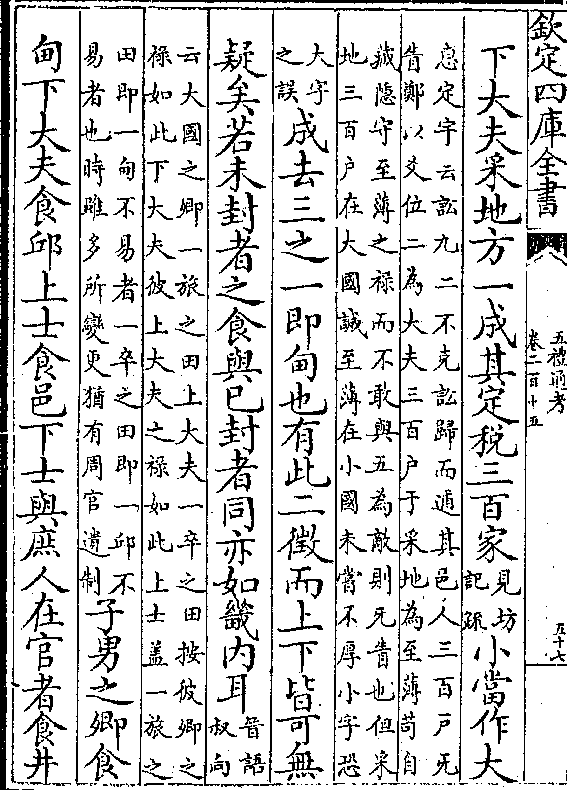 欽定四庫全書
五禮通考
卷二百十五
五十七
下大夫采地方一成其定稅三百家見坊記疏小當作大
惠定宇云訟九二不克訟歸而逋其邑人三百戶无
眚鄭以爻位二為大夫三百戶于采地為至薄苟自
藏隱守至薄之禄而不敢與五為敵則无眚也但采
地三百户在大國誠至薄在小國未嘗不厚小字恐
大字之誤成去三之一即甸也有此二徵而上下皆可無
疑矣若未封者之食與已封者同亦如畿内耳晉語叔向
云大國之卿一旅之田上大夫一卒之田按彼卿之
禄如此下大夫彼上大夫之禄如此上士盖一旅之
田即一甸不易者一卒之田即一邱不
易者也時雖多所變更猶有周官遺制子男之卿食
甸下大夫食邱上士食邑下士與庶人在官者食井